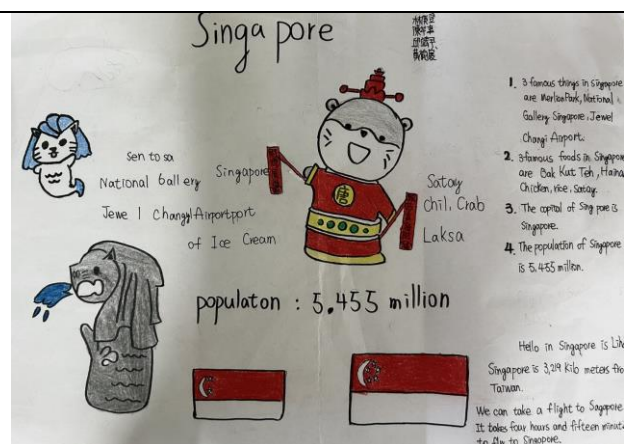 Singa pore
sen to sa
National Gallery Singapore
Jewe l Changyi Airportport
of Ice Cream
唐
Satay
Chil, Crab
Laksa
populaton : 5.455 million
1. 3 famous things in Singapore
are Merlion Park, National
Gallery Singapore, Jewel
Changi Airport.
2. 3 famous foods in Singapore
are Bak Kut Teh, Haina
Chicken, rice, Satay.
3. The capital of Sing pore is
Singapore.
4. The population of Singapore
is 5.455 million.
Hello in Singapore is
Singapore is 3,219 Kilo meters
Taiwan.
We can take a flight to Sagapore
It takes four hours and fifteen
to fly to Singpore.